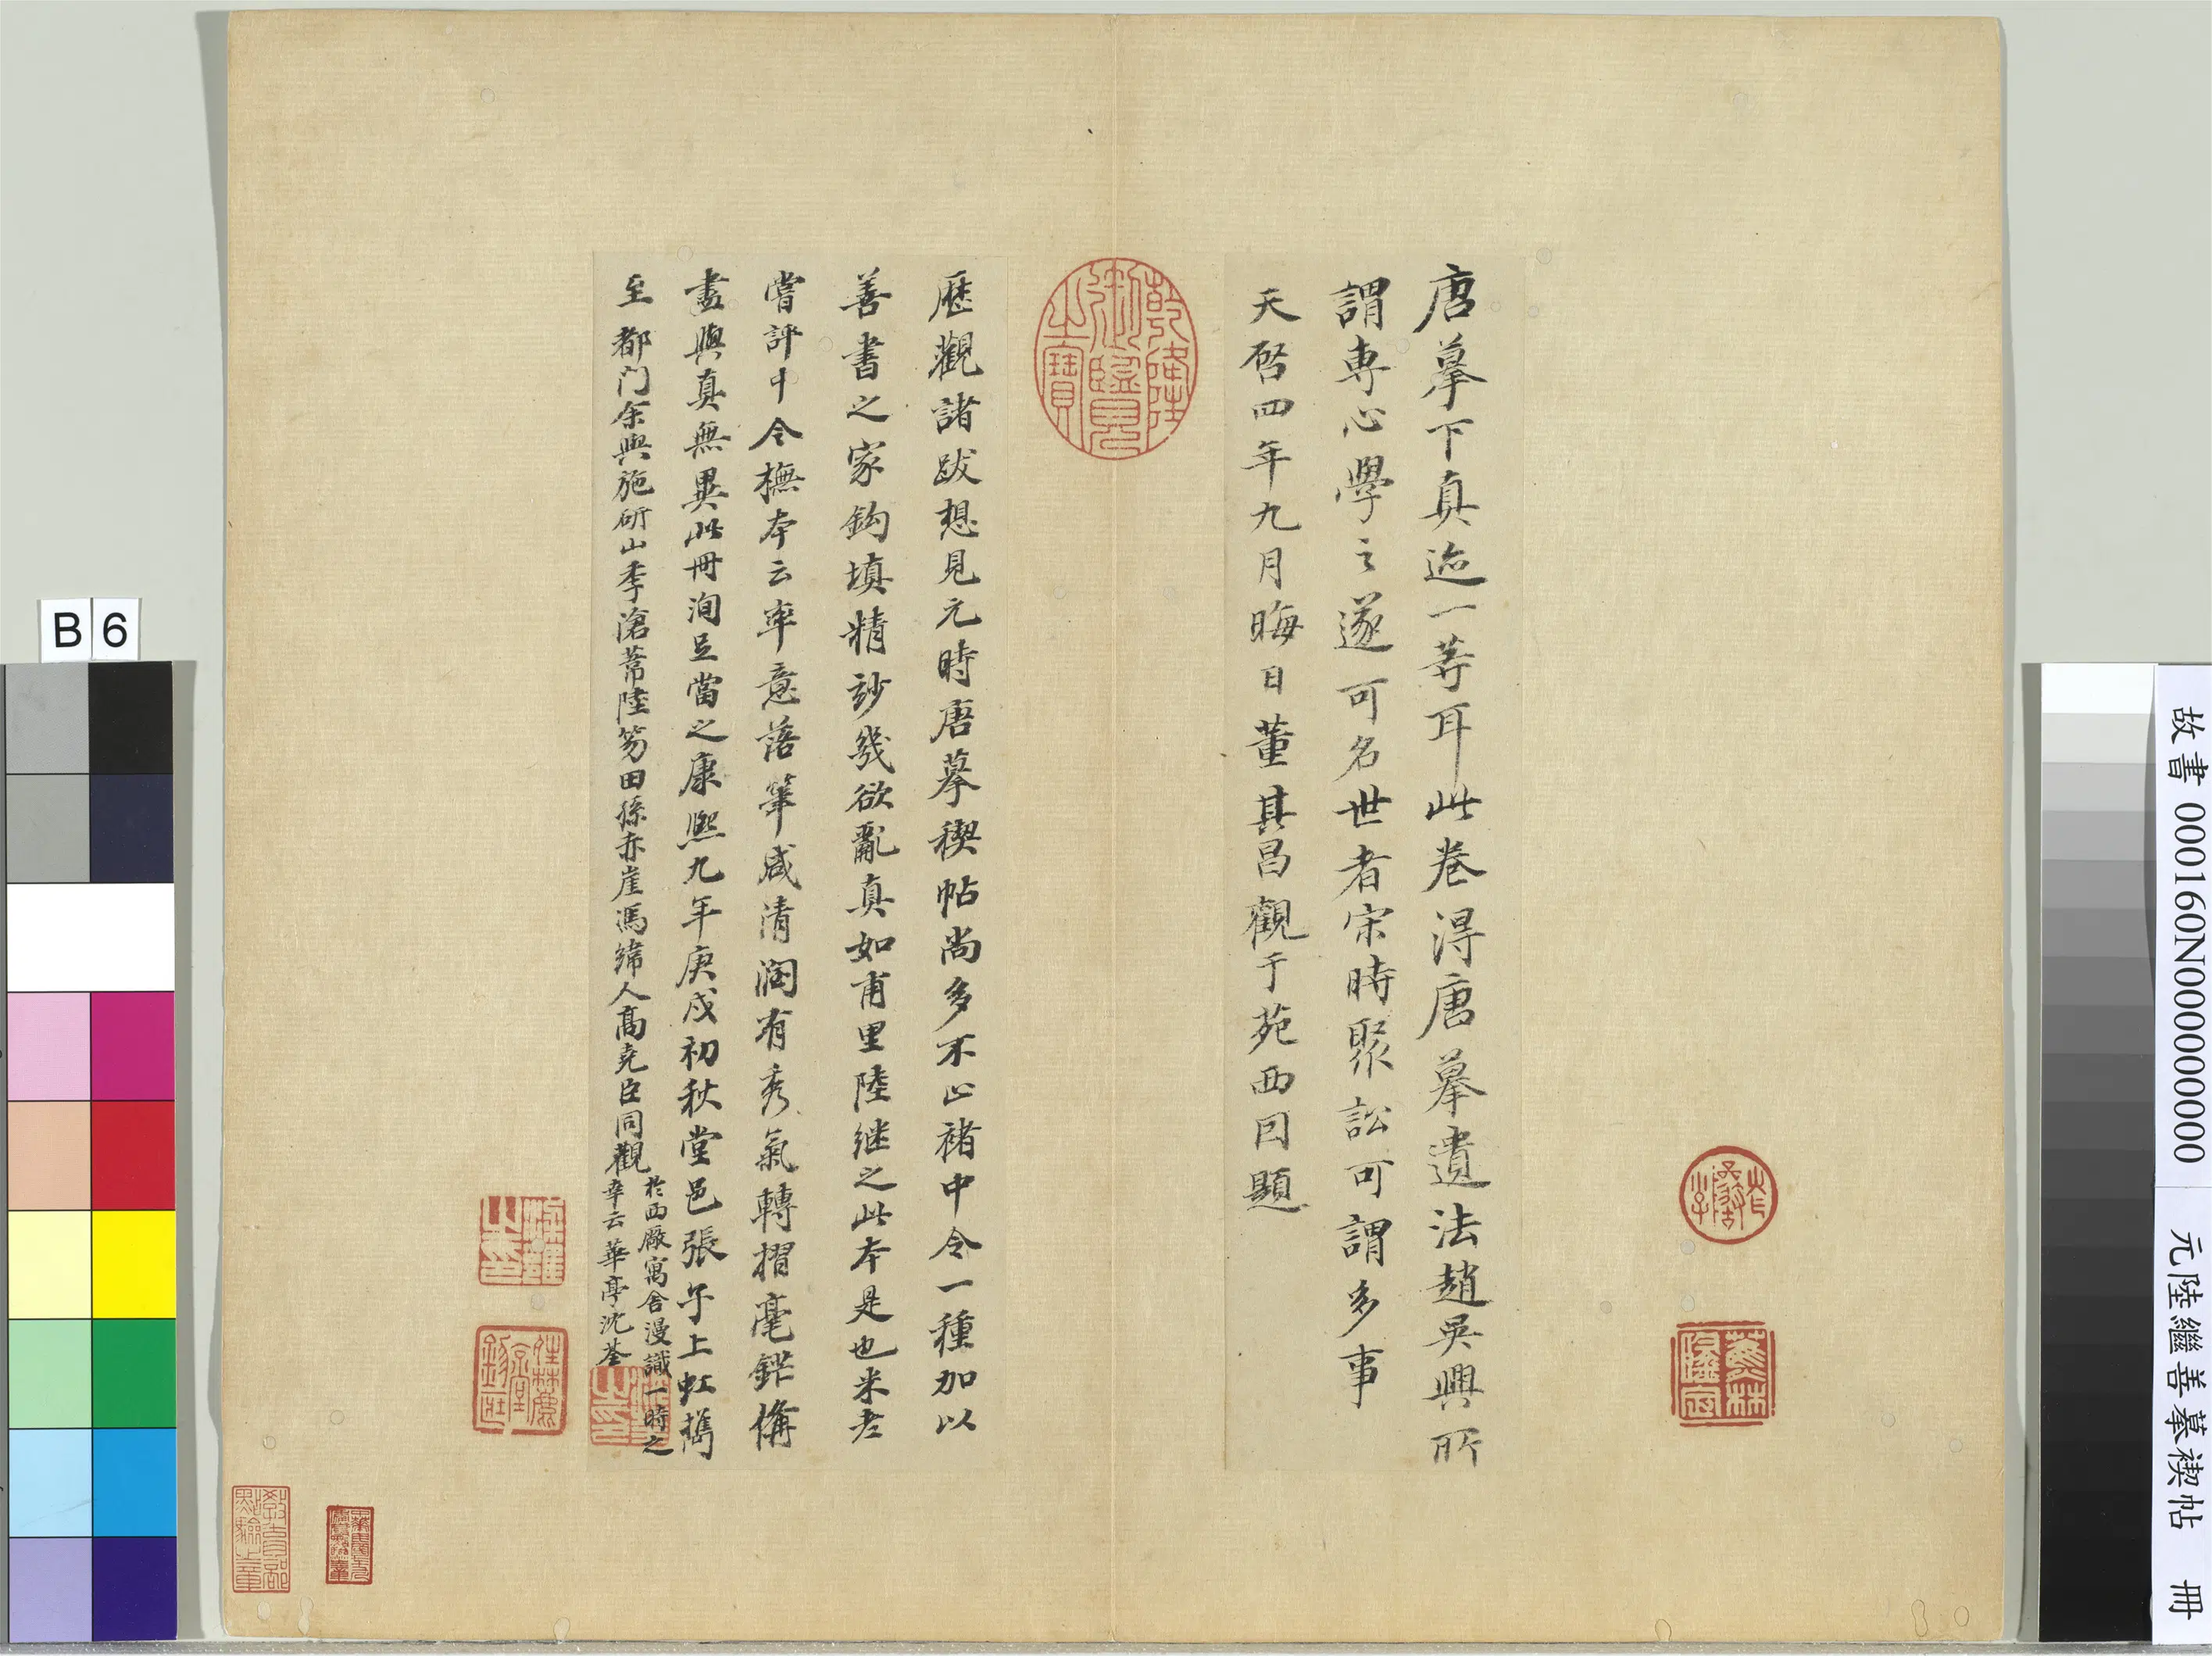 唐摹下真迹一等耳此卷得唐摹遺法趙吳興所
謂專心學之遂可名世者宋時聚訟可謂多事
天啓四年九月晦日董其昌觀于苑西因題
乾隆御覽之寶
歷觀諸跋想見元時唐摹禊帖尚多不止褚中令一種加以
善書之家鈎填精妙幾欲亂真如甫里陸继之此本是也米老
嘗評中令橅本云率意落筆咸清潤有秀氣轉摺毫鋩備
盡與真無異此冊洵足當之康熙九年庚戌初秋堂邑張子上虹攜
至都門余與施研山季滄葦陸笏田孫赤崖馮緯人高堯臣同觀
於西廠寓舍漫識一時之
幸云華亭沈荃
蕉林
教育部點驗之章
B 6
故書 000160N000000000 元陸繼善摹禊帖 冊